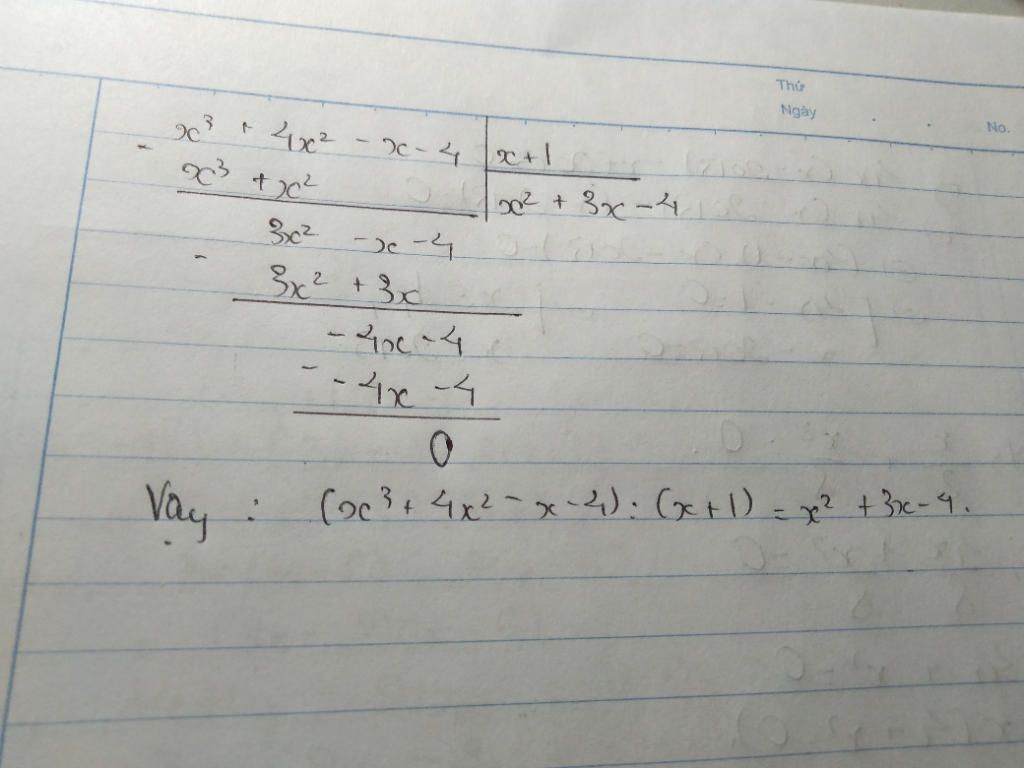 Thứ
Ngày
No.
x³ + 4x² - x - 4 | x + 1
- x³ + x² | x² + 3x - 4
3x² - x - 4
- 3x² + 3x
- 4x - 4
- - 4x - 4
0
Vậy : (x³ + 4x² - x - 4) : (x + 1) = x² + 3x - 4.